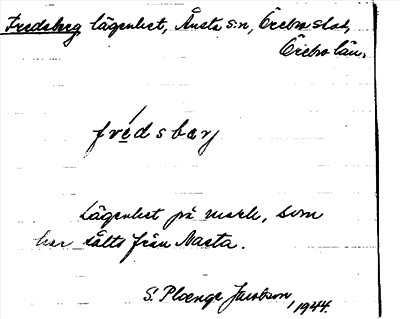 Fredsberg, lägenhet, Ånsta s:n, Örebro stad,
Örebro län.
fre´dsbærj
Lägenhet på mark, som
har sålts från Nasta.
S. Ploenge Jacobson, 1944.